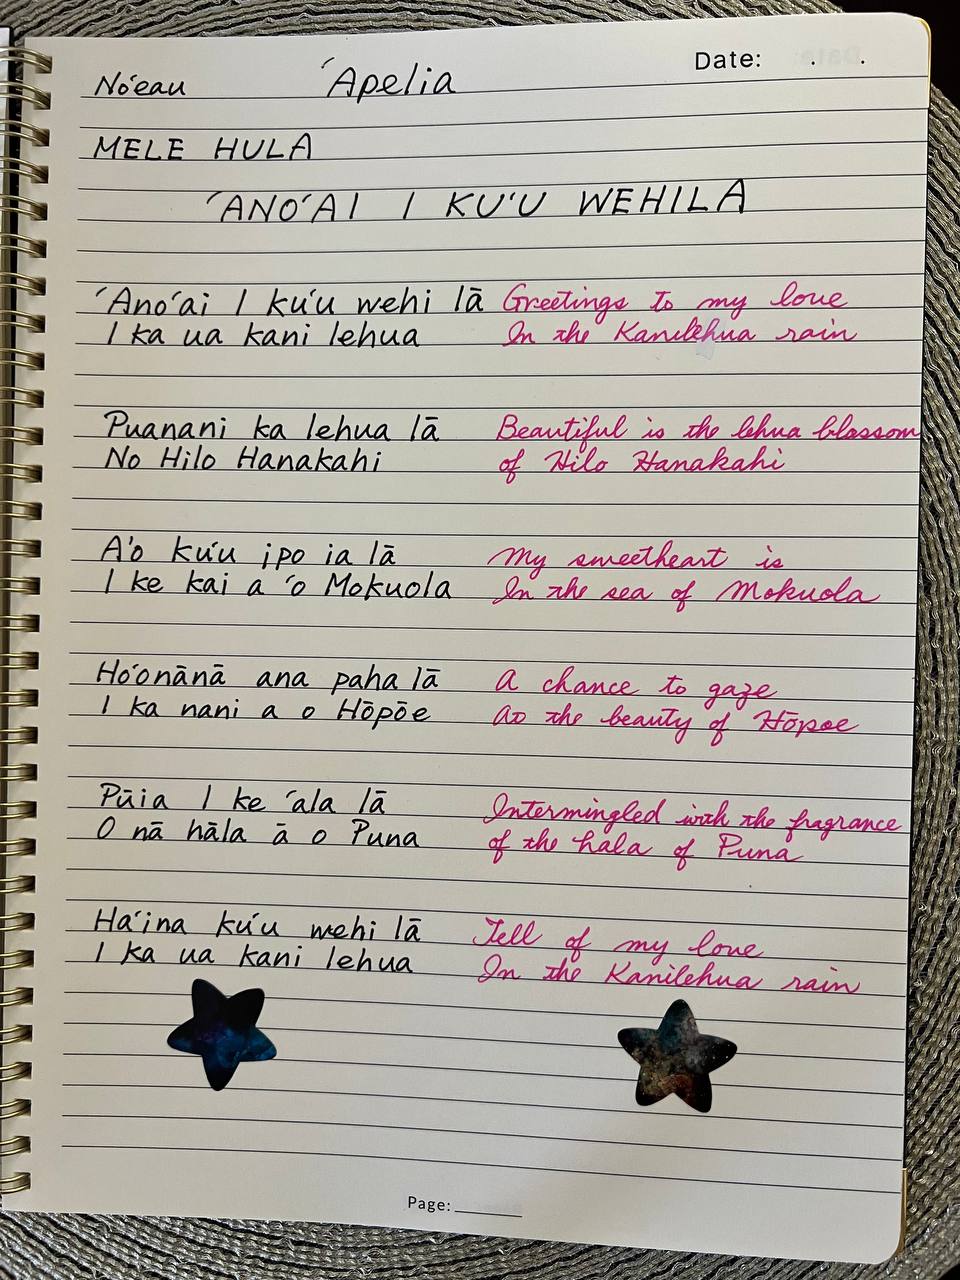 Date: . .
Noʻeau ʻApelia
MELE HULA
ʻANOʻAI I KUʻU WEHILA
ʻAnoʻai I kuʻu wehi lā Greetings to my love
I ka ua kani lehua In the Kanilehua rain
Puanani ka lehua lā Beautiful is the lehua blossom
No Hilo Hanakahi of Hilo Hanakahi
Aʻo kuʻu ipo ia lā My sweetheart is
I ke kai a ʻo Mokuola In the sea of Mokuola
Hoʻonānā ana paha lā A chance to gaze
I ka nani a o Hōpōe At the beauty of Hōpoe
Pūia I ke ʻala lā Intermingled with the fragrance
O nā hāla ā o Puna of the hala of Puna
Haʻina kuʻu wehi lā Tell of my love
I ka ua kani lehua In the Kanilehua rain
Page: